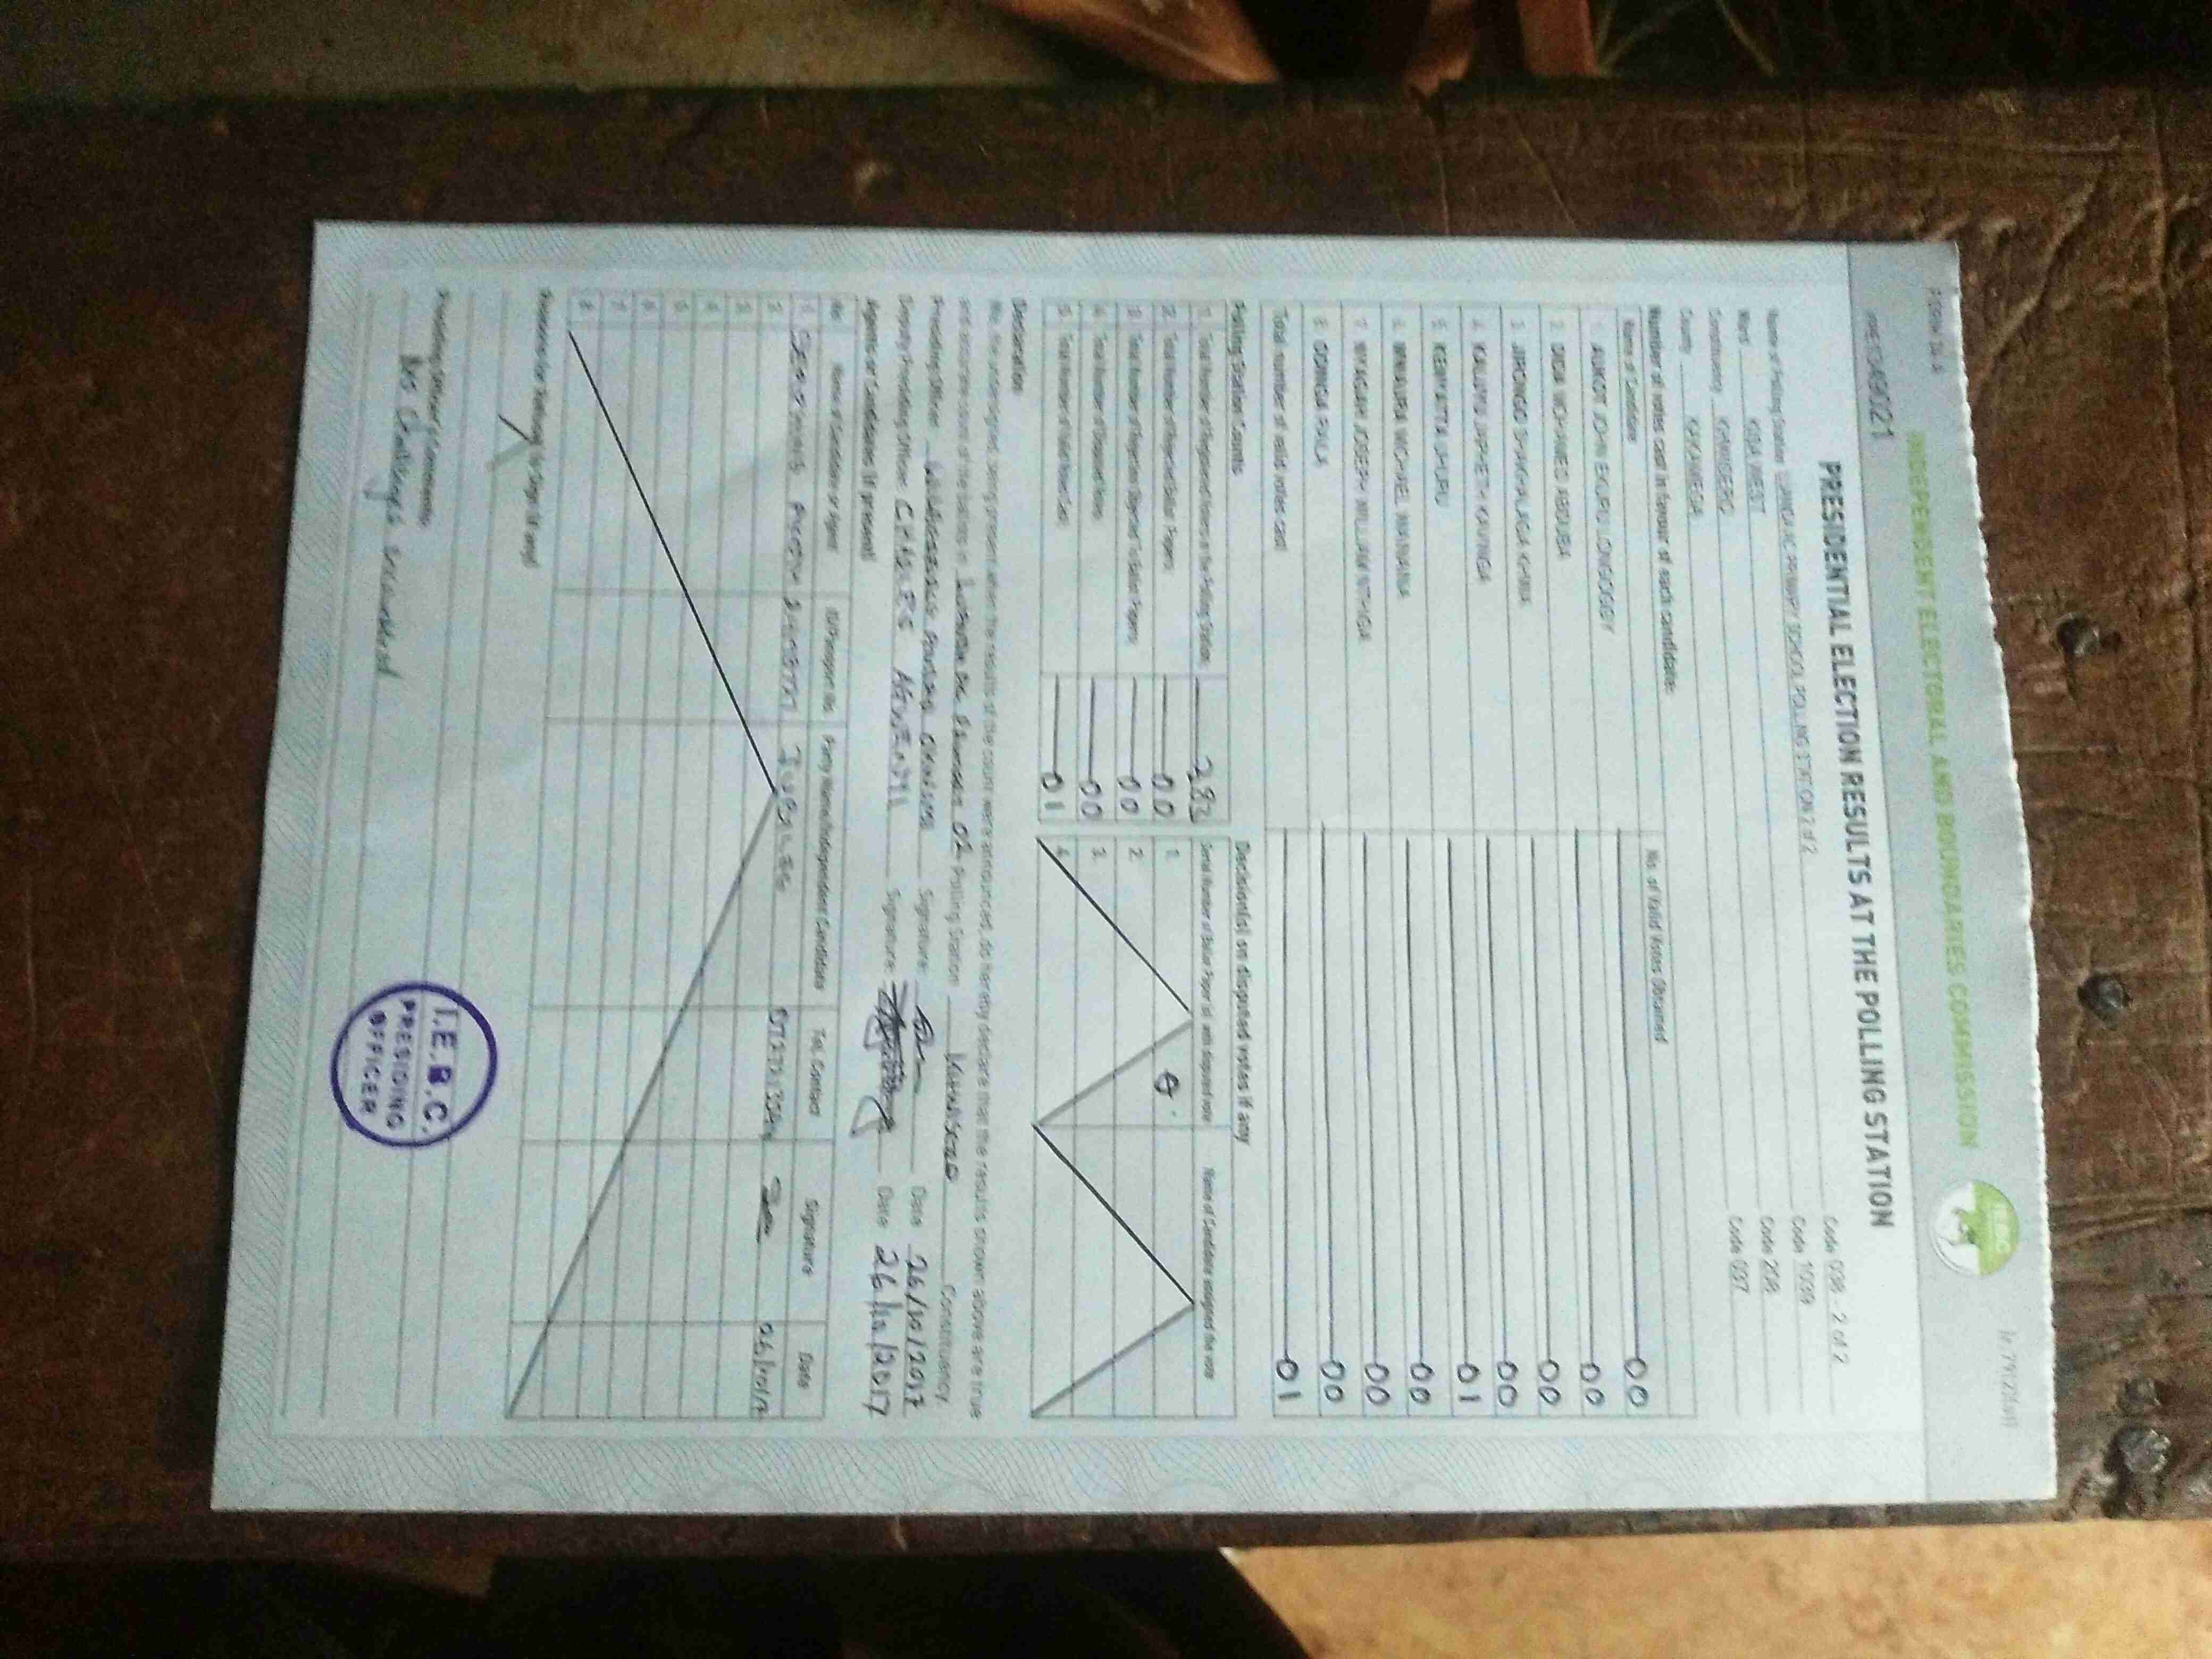 FORM 34A
INDEPENDENT ELECTORAL AND BOUNDARIES COMMISSION
IEBC
PRESIDENTIAL ELECTION RESULTS AT THE POLLING STATION
Name of Polling Station PRIMARY SCHOOL POLLING STATION 2 of 2 Code 098 - 2 of 2
Ward KISA WEST Code 1039
Constituency KHWISERO Code 208
County KAKAMEGA Code 037
Number of votes cast in favour of each candidate:
Name of Candidate No. of Valid Votes Obtained
1. AUKOT JOHN EKURU LONGOGGY 00
2. DIDA MOHAMED ABDUBA 00
3. JIRONGO SHAKHALAGA KHWA 00
4. KALUYU JAPHETH KAVINGA 00
5. KENYATTA UHURU 01
6. MWAURA MICHAEL WAINAINA 00
7. NYAGAH JOSEPH WILLIAM NTHIGA 00
8. ODINGA RAILA 00
Total number of valid votes cast 01
Polling Station Counts
1. Total Number of Registered Voters in the Polling Station 282
2. Total Number of Rejected Ballot Papers 00
3. Total Number of Rejection Objected To Ballot Papers 00
4. Total Number of Disputed Votes 00
5. Total Number of Valid Votes Cast 01
Decision(s) on disputed votes if any
Serial Number of Ballot Paper (s) with disputed vote Name of Candidate assigned the vote
1.
2.
3.
4.
Declaration
We, the undersigned, being present when the results of the count were announced, do hereby declare that the results shown above are true
and accurate count of the ballots in 02 Polling Station Khwisero Constituency
Presiding Officer Signature: Date 26/10/2017
Deputy Presiding Officer CHARLES Signature: Date 26/10/2017
Agents or Candidates (if present)
No. Name of Candidate or Agent ID/Passport No. Party Name/Independent Candidate Tel. Contact Signature Date
1. JUBILEE 26/10/17
2
3
4
5
6
7
8
Reasons for Refusal to Sign (if any)
Presiding Officer's Comments
No Challenges encountered
I.E.B.C.
PRESIDING
OFFICER